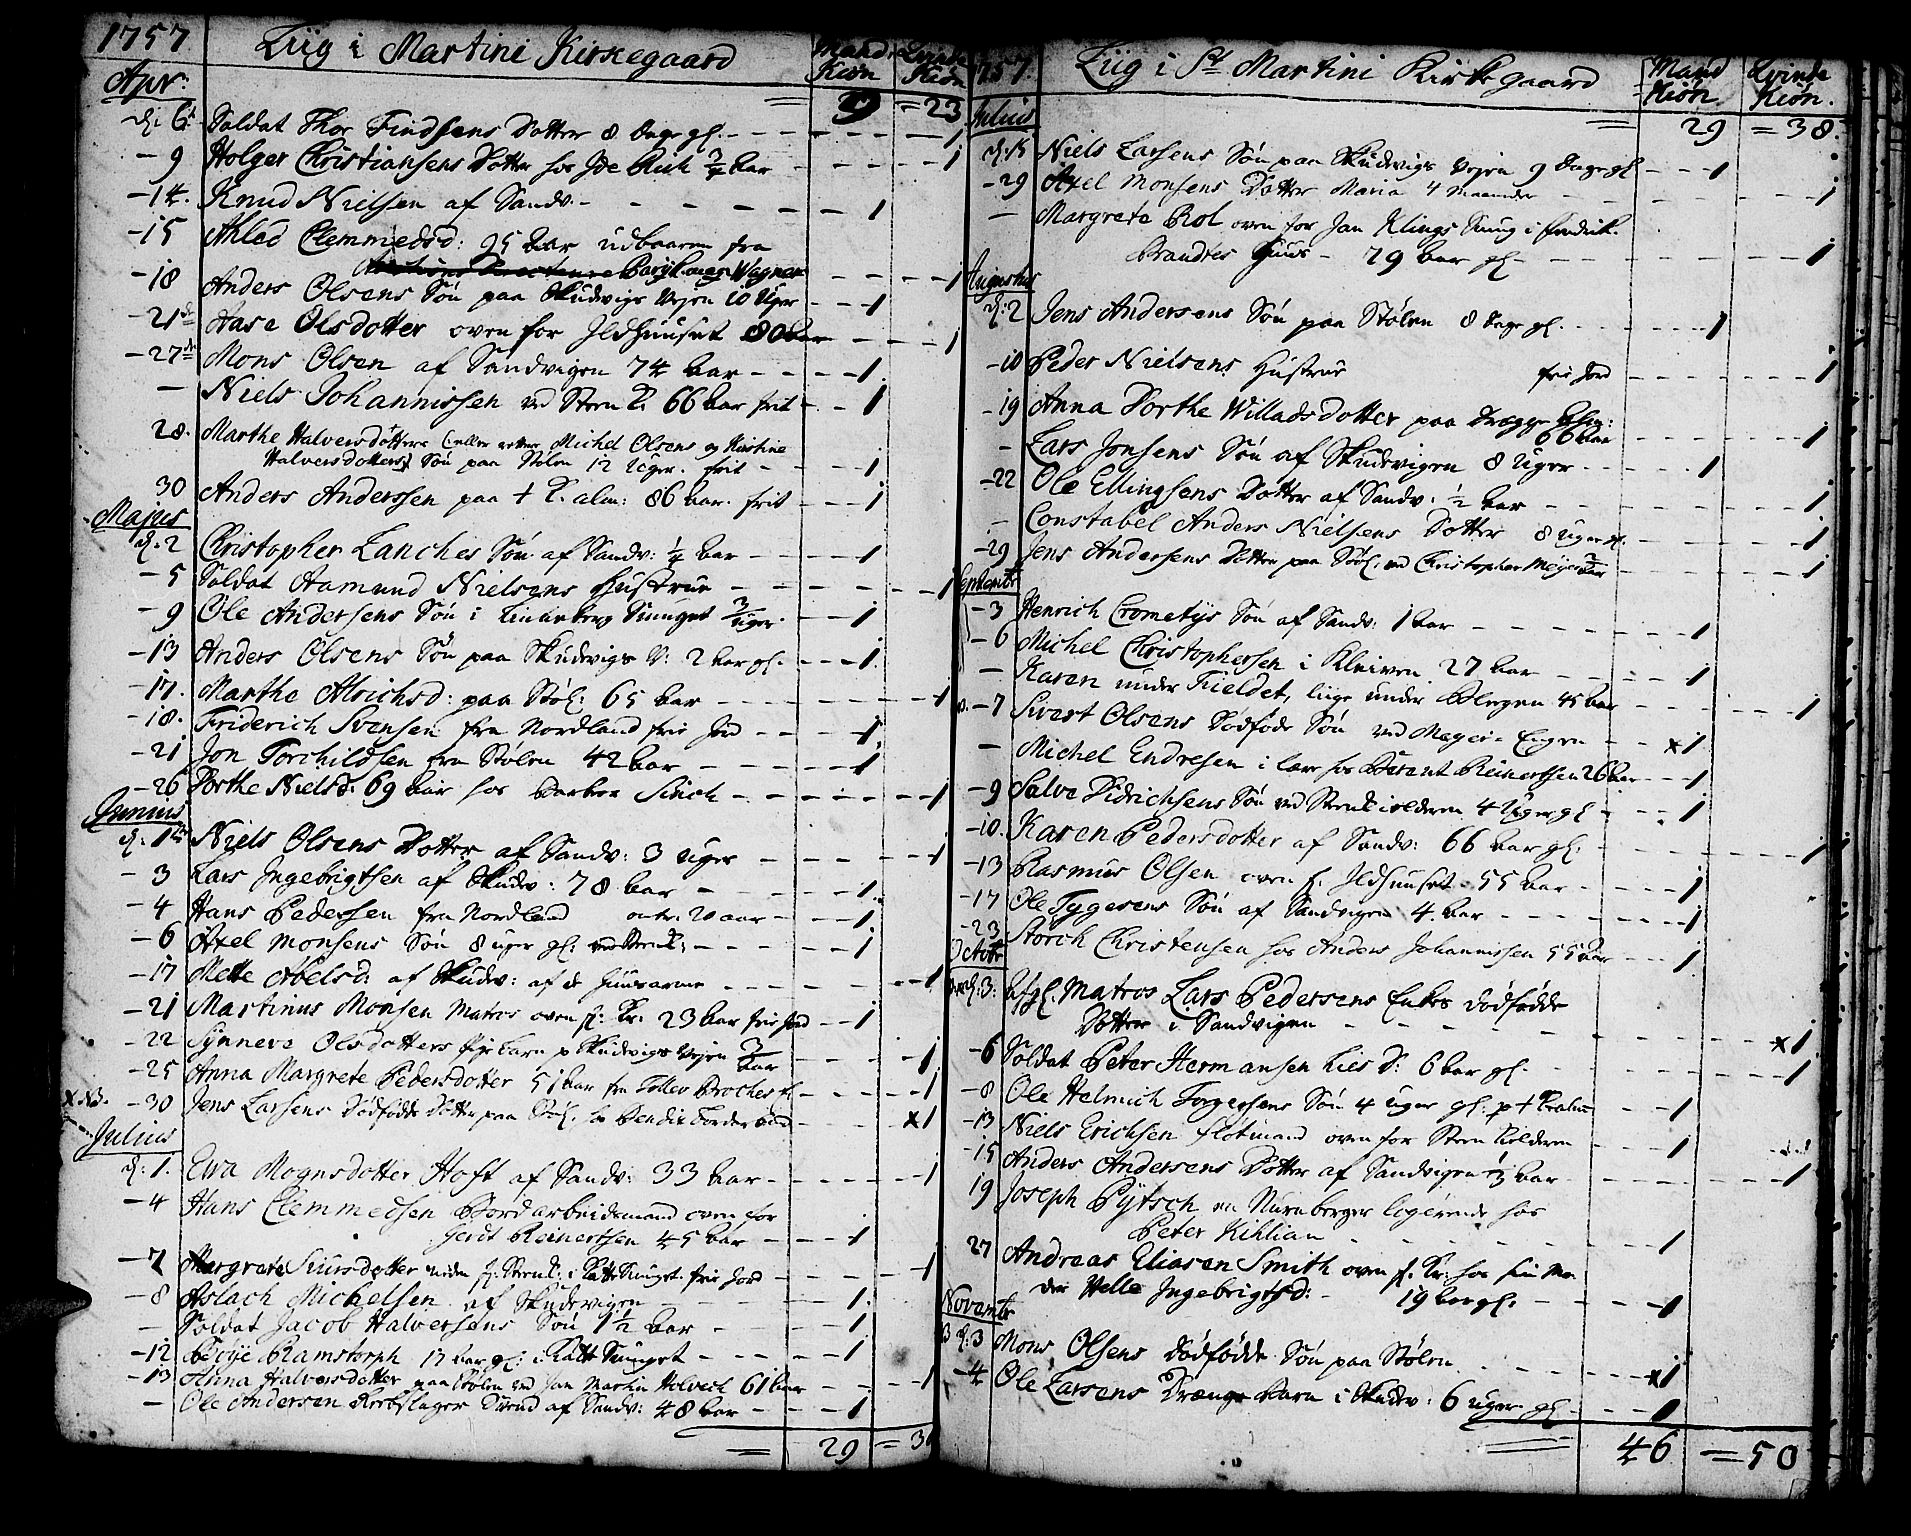 1757 Liig i Martini Kirkegaard Mand Kiøn Qvinde Kiøn
Apr: = 9 = 23
d. 6t Soldat Thor Findsens Dotter 8 Dage gl. 1
- 9 Holger Christiansens Dotter hos 3/4 Aar 1
- 14. Knud Nielsen af Sandv. 1
- 15 Ahled Clemmedsd: 95 Aar udbaaren fra
Wagner 1
- 18 Anders Olsens Sön paa Skudvigs Vejen 10 Uger 1
- 21de Aase Olsdotter oven for Ildhuuset 80 Aar 1
- 27de Mons Olsen af Sandvigen 74 Aar 1
- Niels Johannissen ved Steru K. 66 Aar frit 1
28. Marthe Halversdotters (eller rettere Michel Olsens og Kirstine
Halversdotters) Sön paa Stølen 12 Uger. frit 1
30 Anders Anderssen paa + K. alm: 86 Aar. frit 1
Majus
d. 2 Christopher Lanches Sön af Sandv: 1/4 Aar 1
- 5 Soldat Aamund Nielsens Hustrue 1
- 9 Ole Andersens Sön i Smuget 3 Uger 1
- 13 Anders Olsens Sön paa Skudvigs V: 2 Aar gl. 1
- 17. Marthe Alrichsd: paa Støl: 65 Aar 1
- 18. Friderich Svensen fra Nordland frie Jord 1
- 21 Jon Torchildsen fra Stølen 42 Aar 1
- 26 Dorthe Nielsd. 69 Aar hos Barber 1
Junius
d: 1te Niels Olsens Dotter af Sandv: 3 Uger 1
- 3 Lars Ingebrigtsen af Skudv: 78 Aar 1
- 4 Hans Pedersen fra Nordland 20 aar 1
- 6 Axel Monsens Sön 8 uger gl: 1
- 17 Mette Abelsd: af Skudv: af de Huusarme 1
- 21 Martinus Monsen Matros oven f: Kr: 23 Aar frie Jord 1
- 22 Synneve Olsdotters Pige Barn p Skudvigs Vejen 3/4 Aar 1
- 25 Anna Margrete Pedersdotter 51 Aar fra 1
x NB. - 30 Jens Larsens Dødfødde Dotter paa Støl. x1
Julius
d: 1. Ewa Mognsdotter Hoft af Sandv: 33 Aar 1
- 4 Hans Clemmedsen Bordarbeidsmand oven for
Gerdt Reinertsen 45 Aar 1
- 7 Margrete Siursdotter neden f: i Katt Smuget frie Jord 1
- 8 Aslach Michelsen af Skudevigen 1
- Soldat Jacob Halversens Sön 1 1/2 Aar 1
- 12 Boije Ramstorph 13 Aar gl: i Katt Smuget 1
- 13 Anna Halversdotter paa Stølen ved Jan Martin Holvech 61 Aar 1
- Ole Andersen Rebslager Svend af Sandv: 48 Aar 1
= 29 = 3
1757. Liig i St Martini Kirkegaard Mand Kiøn Qvinde Kiøn.
Julius = 29 = 38.
Niels Larsens Sön paa Skudvigs Vejen 9 Dage gl 1
- 29 Axel Monsens Dotter Maria 4 Maaneder 1
- Margrete Rol oven for Jan Klings Smug i Fredrik
Brandtes Huus - 79 Aar gl. 1
Augustus
d: 2 Jens Andersens Sön paa Stølen 8 Dage gl. 1
- 10 Peder Nielsens Hustrue frie Jord 1
- 19 Anna Dorthe Willadsdotter paa Dregge
66 Aar 1
- Lars Jonsens Sön af Skudevigen 8 Uger 1
- 22 Ole Ellingsens Dotter af Sandv: 1/2 Aar 1
- Constabel Anders Nielsens Dotter 8 Uger gl. 1
- 29 Jens Andersens Dotter paa Støl: ved Christopher Meyer 1
Septembr
- 3 Henrich Crometijs Sön af Sandv: 1 Aar 1
- 6 Michel Christophersen i Kleiven 27 Aar 1
- Karen under Fieldet, liige under Bergen 45 Aar 1
- 7 Sivert Olsens Dødføde Sön ved Meyer Engen x1
- Michel Endresen i lære hos Berent Reinertsen 26 Aar 1
- 9 Salve Didrichsens Sön ved 4 Uger gl 1
- 10. Karen Pedersdotter af Sandv: 66 Aar gl: 1
- 13 Rasmus Olsen oven f. Ildhuuset 55 Aar 1
- 17 Ole Tygesens Sön af Sandvigen 4 Aar 1
- 23 Storch Christensen hos Anders Johannissen 55 Aar 1
Octobr
d: 3. Afgl. Matros Lars Pedersens Enkes dødfødde
Dotter i Sandvigen x1
- 6 Soldat Peter Hermansen Lies D: 6 Aar gl. 1
- 8 Ole Helmich Torgersens Sön 4 uger gl: p + Kalm 1
- 13 Niels Erichsen Flotmand oven for 1
- 15 Anders Andersens Dotter af Sandvigen Aar 1
19 Joseph Pÿtsch en Nurnberger logerende hos
Peter Kihlian 1
27 Andreas Eliasen Smith oven f. Kr: hos sin Mo
der Helle Ingebrigtsd: 19 Aar gl. 1
Novembr
d: 3 Mons Olsens dødfødde Sön paa Stølen x1
- 4 Ole Larsens Drænge Barn i Skudv: 6 uger gl 1
46 = 50